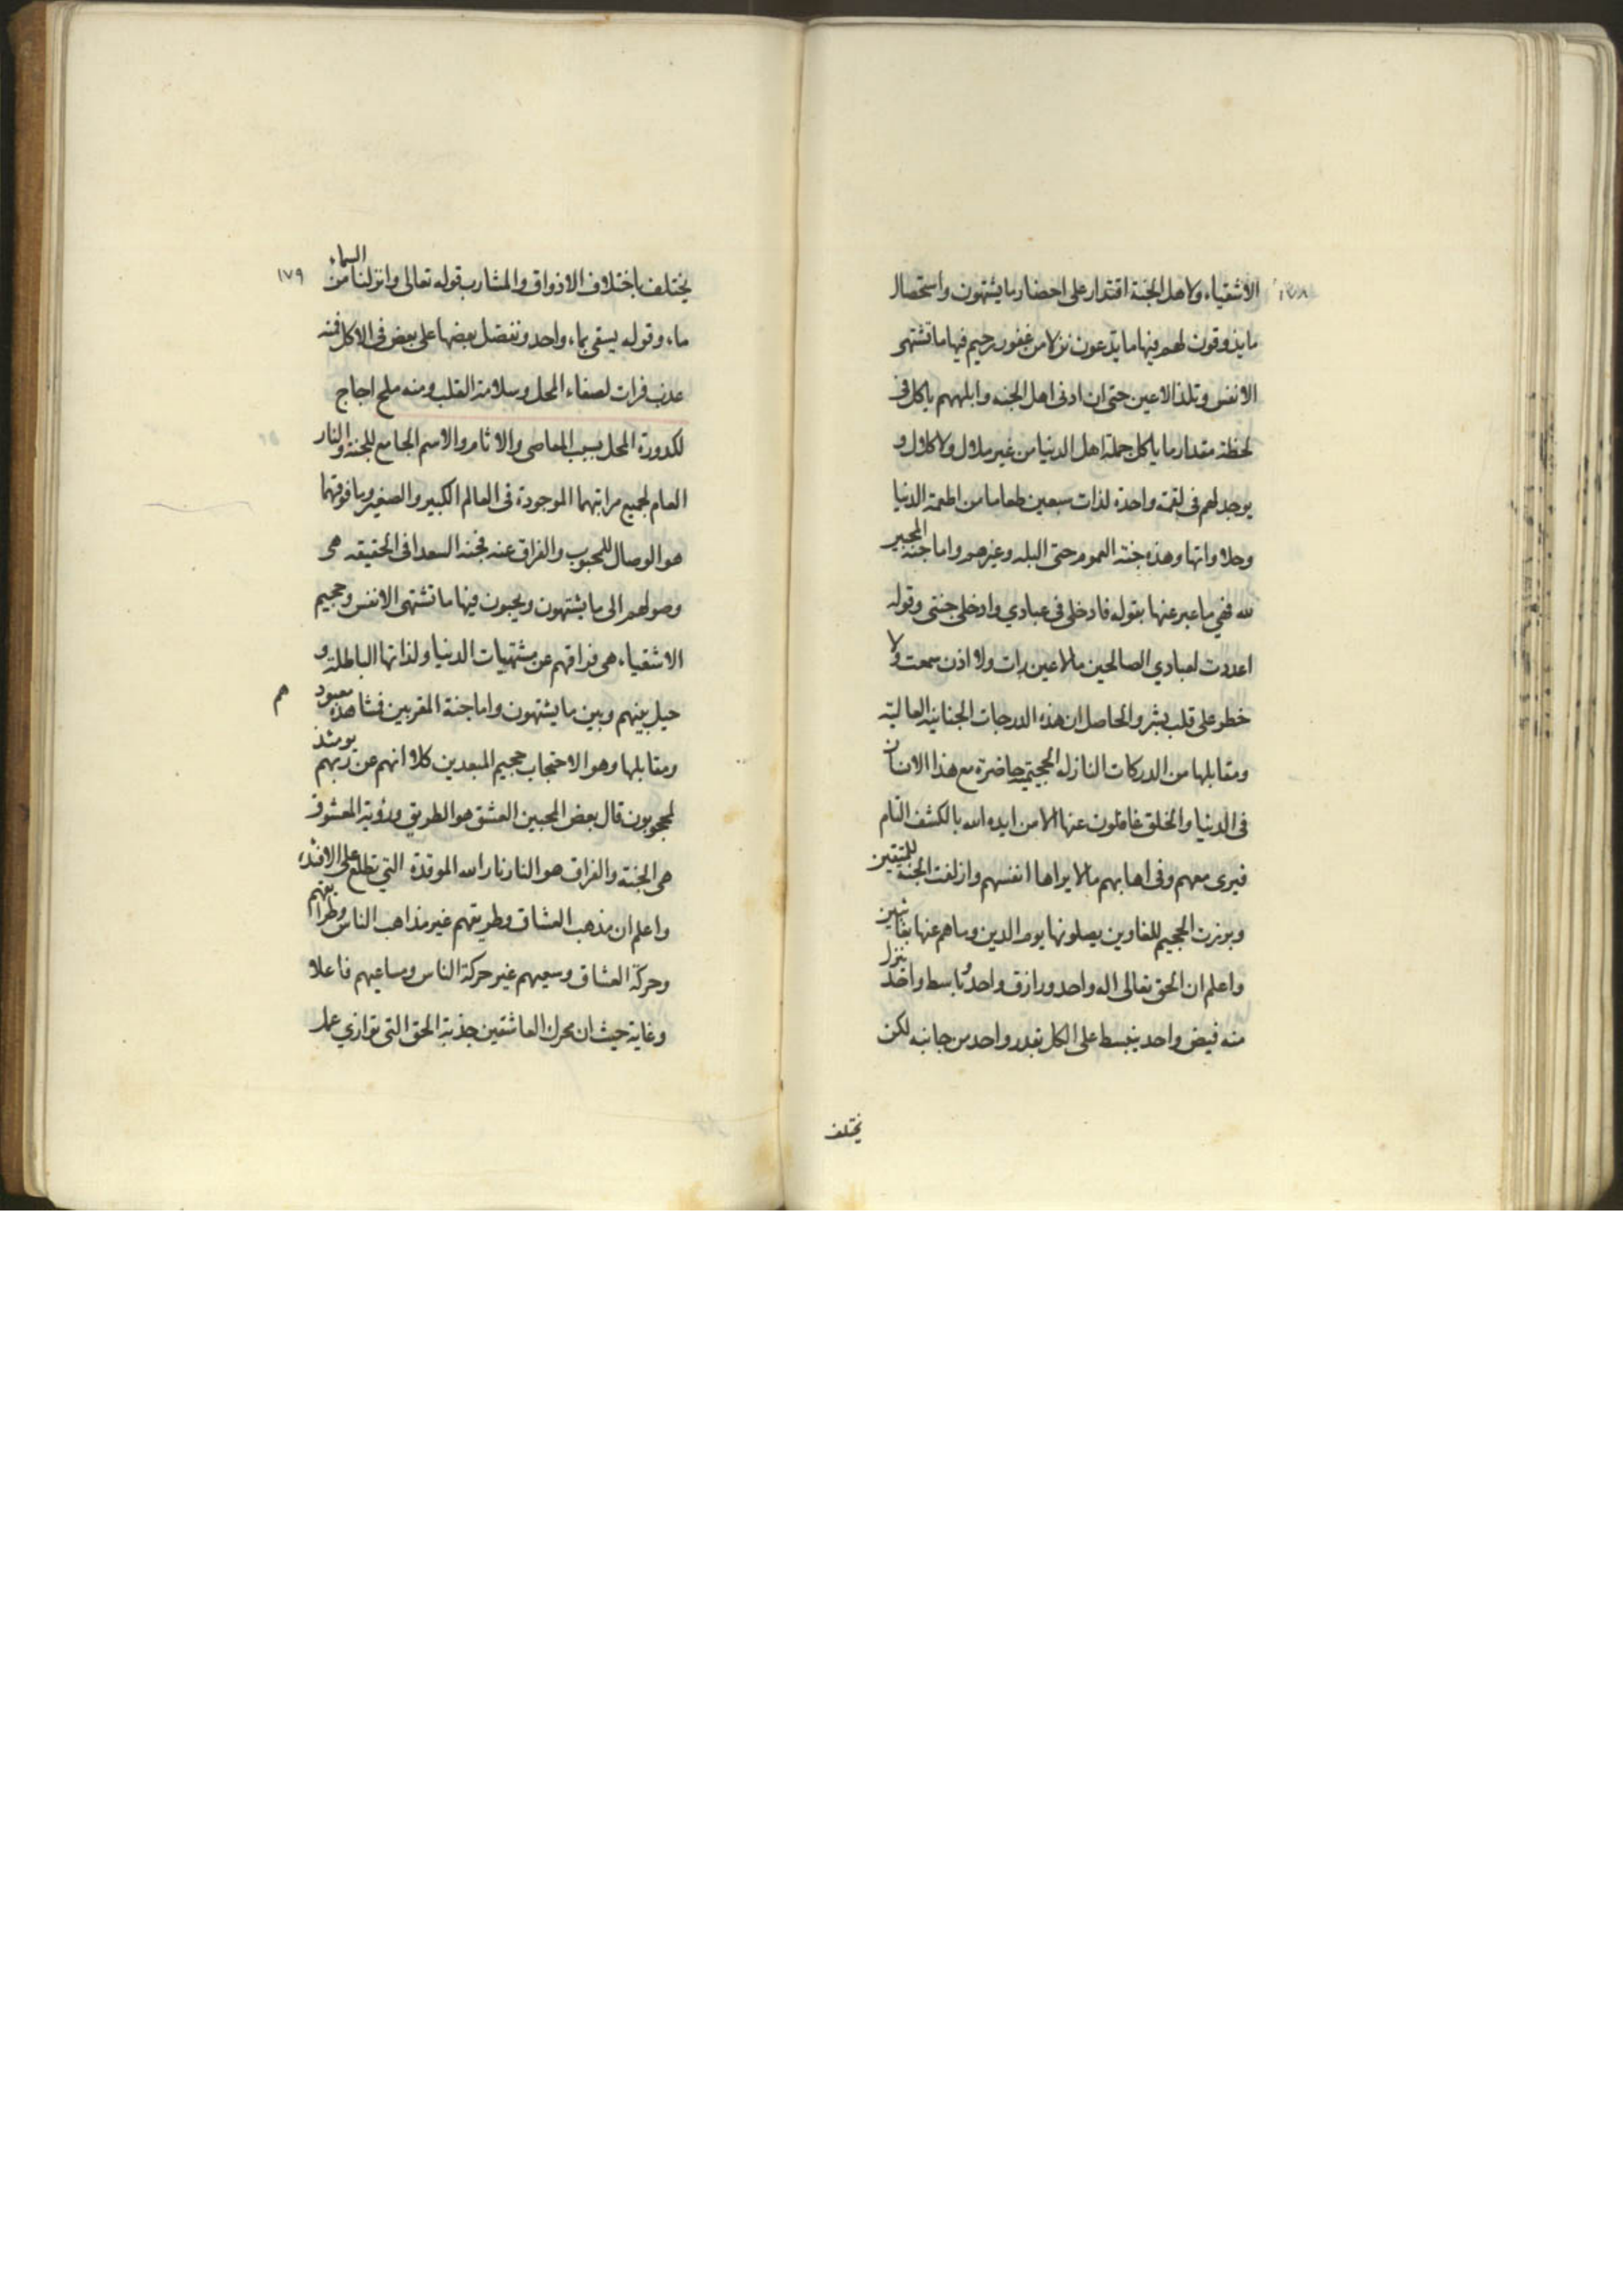 الاشقياء ولاهل الجنة اقتدار على احضار ما يشتهون واستحصال
ما يذوقون لهم فيها ما يدعون نزلا من غفور رحيم فيها ما تشتهى
الانفس وتلذ الاعين حتى ان ادنى اهل الجنه وابلههم ياكل فى
لحظة مقدار ما ياكل جملة اهل الدنيا من غير ملال ولا كلال و
يوجد لهم فى لقمة واحدة لذات سبعين طعاما من اطعمة الدنيا
وحلاواتها وهذه جنة العموم حتى البله وغيرهم واما جنة المحبين
لله فهي ما عبر عنها بقوله فادخلى فى عبادي وادخلى جنتى وقوله
اعددت لعبادي الصالحين ما لا عين رات ولا اذن سمعت ولا
خطر على قلب بشر والحاصل ان هذه الدرجات الجنانيه العالية
ومقابلها من الدركات النازله الجحيمية حاضرة مع هذا الانسان
فى الدنيا والخلق غافلون عنها الا من ايده الله بالكشف التام
فيرى معهم وفى اهابهم ما لا يراها انفسهم وازلفت الجنة للمتقين
وبرزت الجحيم للغاوين يصلونها يوم الدين وما هم عنها بغائبين
واعلم ان الحق تعالى اله واحد ورازق واحد وباسط واحد ينزل
منه فيض واحد ينبسط على الكل بقدر واحد من جانبه لكن
يختلف
١٧٩
يختلف باختلاف الاذواق والمشارب قوله تعالى وانزلنا من السماء
ماء وقوله يسقى بماء واحد ونفضل بعضها على بعض فى الاكل فمنه
عذب فرات لصفاء المحل وسلامة القلب ومنه ملح اجاج
لكدورة المحل بسبب المعاصى والاثام والاسم الجامع للجنة والنار
العام لجميع مراتبهما الموجودة فى العالم الكبير والصغير وما فوقهما
هو الوصال للمحبوب والفراق عنه فجنة السعدا فى الحقيقه هى
وصولهم الى ما يشتهون ويحبون فيها ما تشتهى الانفس وجحيم
الاشقياء هى فراقهم عن مشتهيات الدنيا ولذاتها الباطلة و
حيل بينهم وبين ما يشتهون واما جنة المقربين فمشاهدة معبودهم
ومقابلها وهو الاحتجاب جحيم المبعدين كلا انهم عن ربهم يومئذ
لمحجوبون قال بعض المحبين العشق هو الطريق ورؤية المعشوق
هى الجنة والفراق هو النار نار الله الموقدة التي تطلع على الافئدة
واعلم ان مذهب العشاق وطريقهم غير مذاهب الناس وطرايقهم
وحركة العشاق وسعيهم غير حركة الناس ومساعيهم فاعلا
وغاية حيث ان محرك العاشقين جذبة الحق التى توازي عمل